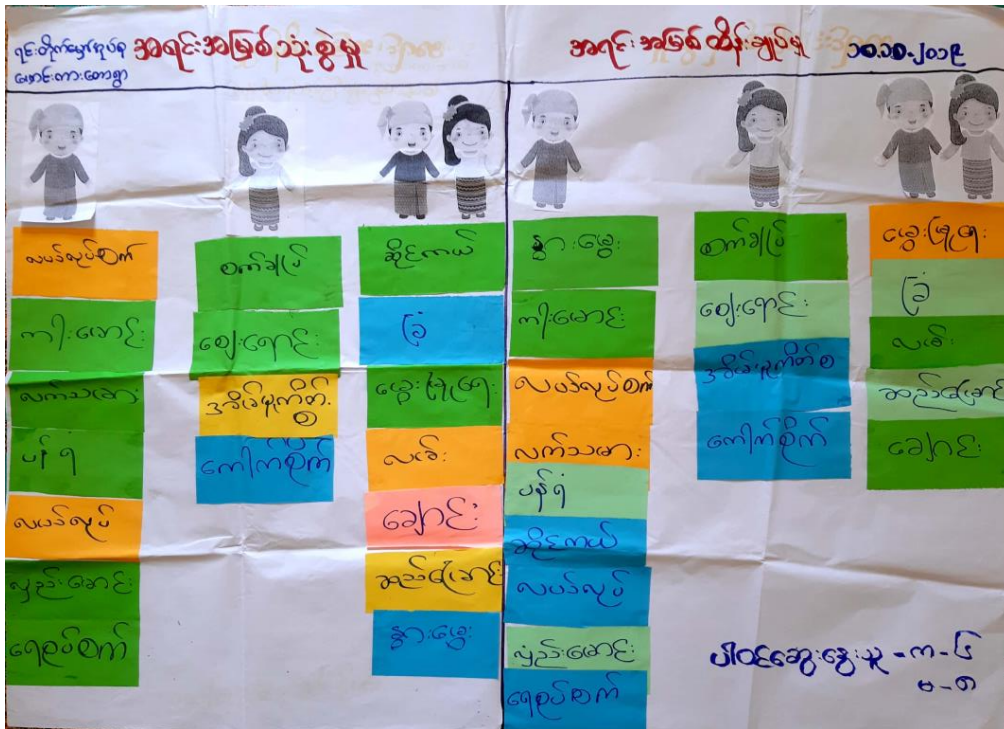 အရင်းအမြစ်သုံးစွဲမှု
အရင်းအမြစ်ထိန်းချုပ်မှု
၁၀.၁၀.၂၀၁၉
လယ်လုပ်စက်
ကါးမောင်း
လက်သမား
ပန်ရံ
လယ်လုပ်
လှည်းမောင်း
ရေစုပ်စက်
စက်ချုပ်
ဈေးရောင်း
အိမ်မှုကိစ္စ
ကောက်စိုက်
ဆိုင်ကယ်
ခြံ
မွေးမြူရေး
လမ်း
ချောင်း
ဆည်မြောင်း
နွားမွေး
နွားမွေး
ကါးမောင်း
လယ်လုပ်စက်
လက်သမား
ပန်ရံ
ဆိုင်ကယ်
လယ်လုပ်
လှည်းမောင်း
ရေစုပ်စက်
စက်ချုပ်
ဈေးရောင်း
အိမ်မှုကိစ္စ
ကောက်စိုက်
မွေးမြူရေး
ခြံ
လမ်း
ဆည်မြောင်း
ချောင်း
ပါဝင်ဆွေးနွေးသူ - က - ၆
မ - ၈